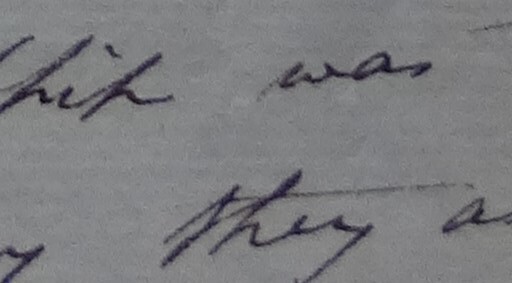 ship was
they